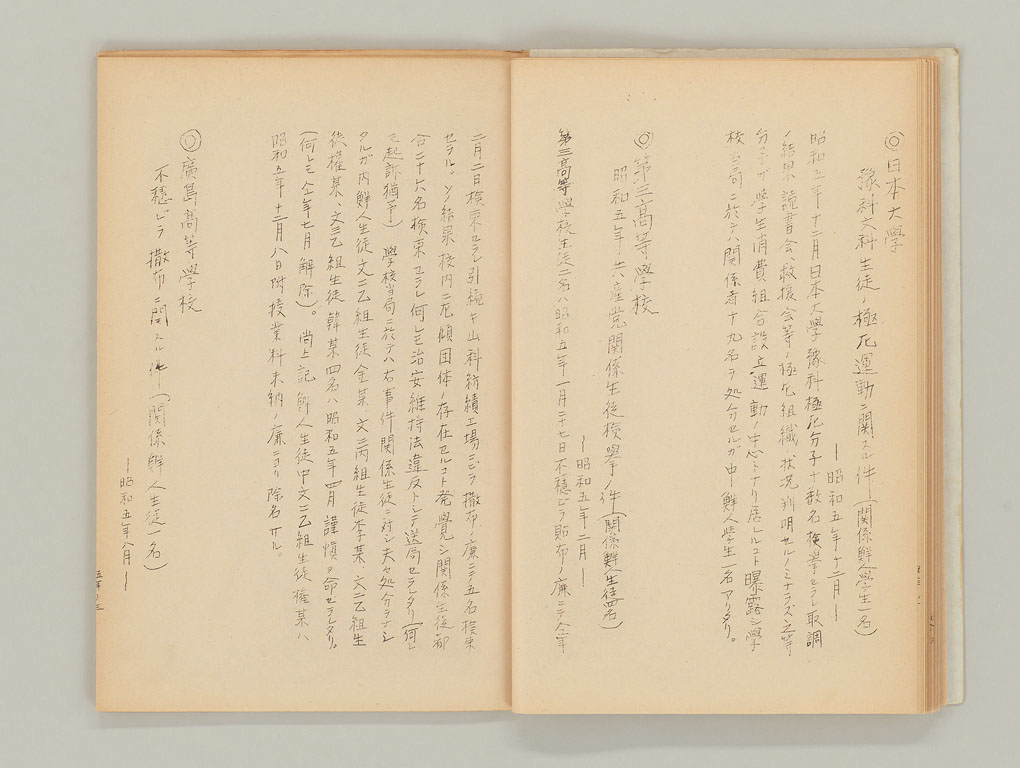 ◎日本大學
豫科文科生徒ノ極左運動ニ関スル件(関係鮮人學生一名)
―昭和五年十二月―
昭和五年十二月日本大學豫科極左分子十数名検挙セラレ取調
ノ結果読書会、救援会等ノ極左組織ノ状況判明セルノミナラズ之等
分子ガ學生消費組合設立運動ノ中心トナリ居レルコト曝露シ學
校当局ニ於テハ関係者十九名ヲ処分セルガ中鮮人學生一名アリタリ。
◎第三高等學校
昭和五年共産党関係生徒検挙ノ件(関係鮮人生徒四名)
―昭和五年二月―
第三高等學校生徒二名ハ昭和五年一月二十七日不穏ビラ貼布ノ廉ニテ仝年
二月二日検束セラレ引続キ山科紡績工場ニビラ撒布ノ廉ニテ五名検束
セラル。ソノ結果校内ニ左傾団体ノ存在セルコト発覺シ関係生徒都
合二十六名検束セラレ何レモ治安維持法違反トシテ送局セラレタリ(何レ
モ起訴猶予) 學校当局ニ於テハ右事件関係生徒ニ対シ夫々処分ヲナシ
タルガ内鮮人生徒文二乙組生徒金某、文二丙組生徒李某、文二乙組生
徒権某、文三乙組生徒韓某四名ハ昭和五年四月謹慎ヲ命セラレタリ。
(何レモ仝年七月解除)。 尚上記鮮人生徒中文二乙組生徒権某ハ
昭和五年十二月八日附授業料未納ノ廉ニヨリ除名サル。
◎廣島髙等學校
不穏ビラ撒布ニ関スル件(関係鮮人生徒一名)
―昭和五年八月―